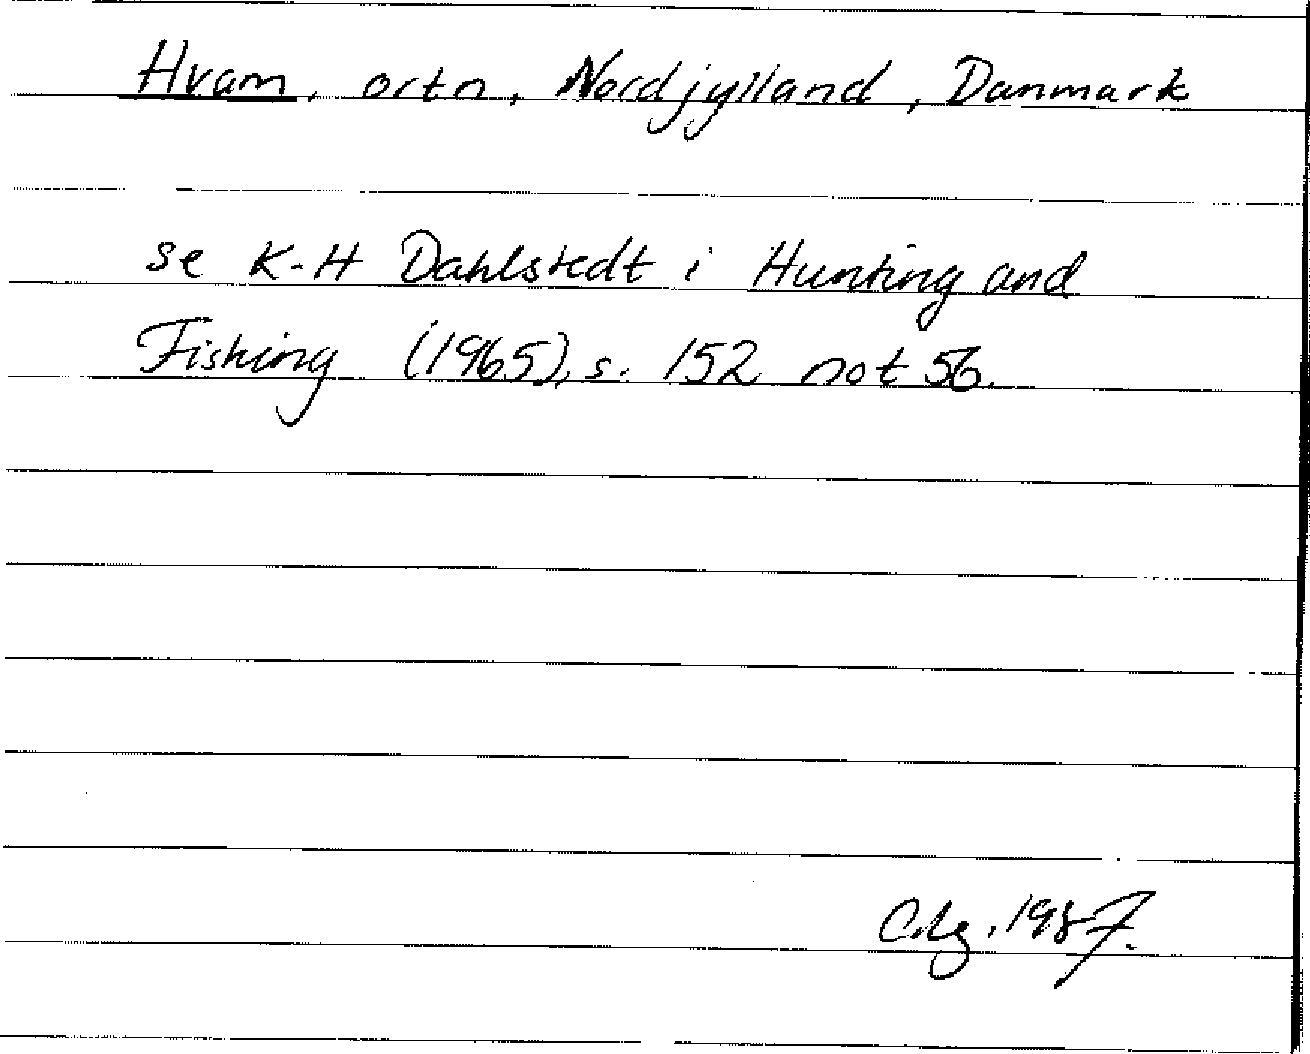 Hvam, ortn, Nordjylland, Danmark
se K-H Dahlstedt i Hunting and
Fishing (1965), s. 152 not 56.
1987.